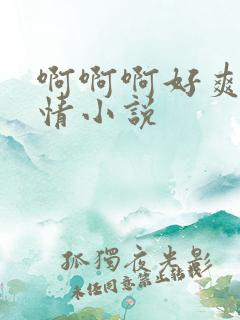 啊啊啊好爽
情小说
孤独夜光影
未经同意禁止转载